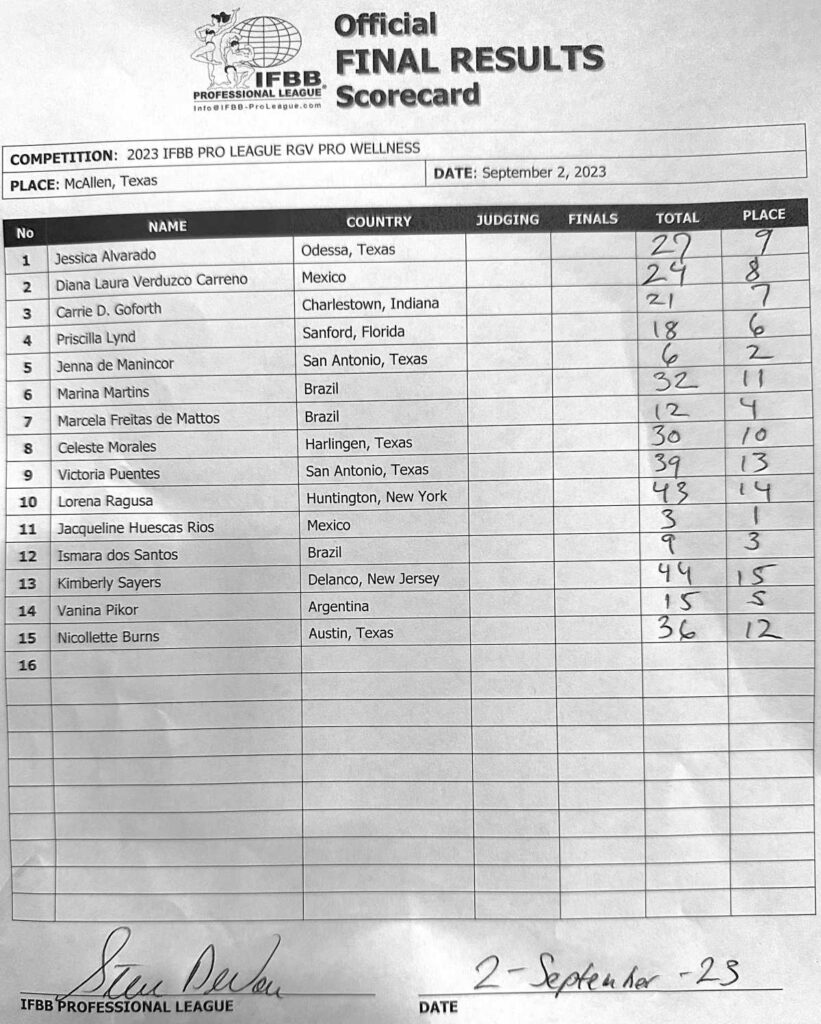 Official
FINAL RESULTS
Scorecard
IFBB
PROFESSIONAL LEAGUE®
Info@IFBB-ProLeague.com
COMPETITION: 2023 IFBB PRO LEAGUE RGV PRO WELLNESS
PLACE: McAllen, Texas DATE: September 2, 2023
No NAME COUNTRY JUDGING FINALS TOTAL PLACE
1 Jessica Alvarado Odessa, Texas 27 9
2 Diana Laura Verduzco Carreno Mexico 24 8
3 Carrie D. Goforth Charlestown, Indiana 21 7
4 Priscilla Lynd Sanford, Florida 18 6
5 Jenna de Manincor San Antonio, Texas 6 2
6 Marina Martins Brazil 32 11
7 Marcela Freitas de Mattos Brazil 12 4
8 Celeste Morales Harlingen, Texas 30 10
9 Victoria Puentes San Antonio, Texas 39 13
10 Lorena Ragusa Huntington, New York 43 14
11 Jacqueline Huescas Rios Mexico 3 1
12 Ismara dos Santos Brazil 9 3
13 Kimberly Sayers Delanco, New Jersey 44 15
14 Vanina Pikor Argentina 15 5
15 Nicollette Burns Austin, Texas 36 12
16
2-September-23
IFBB PROFESSIONAL LEAGUE DATE